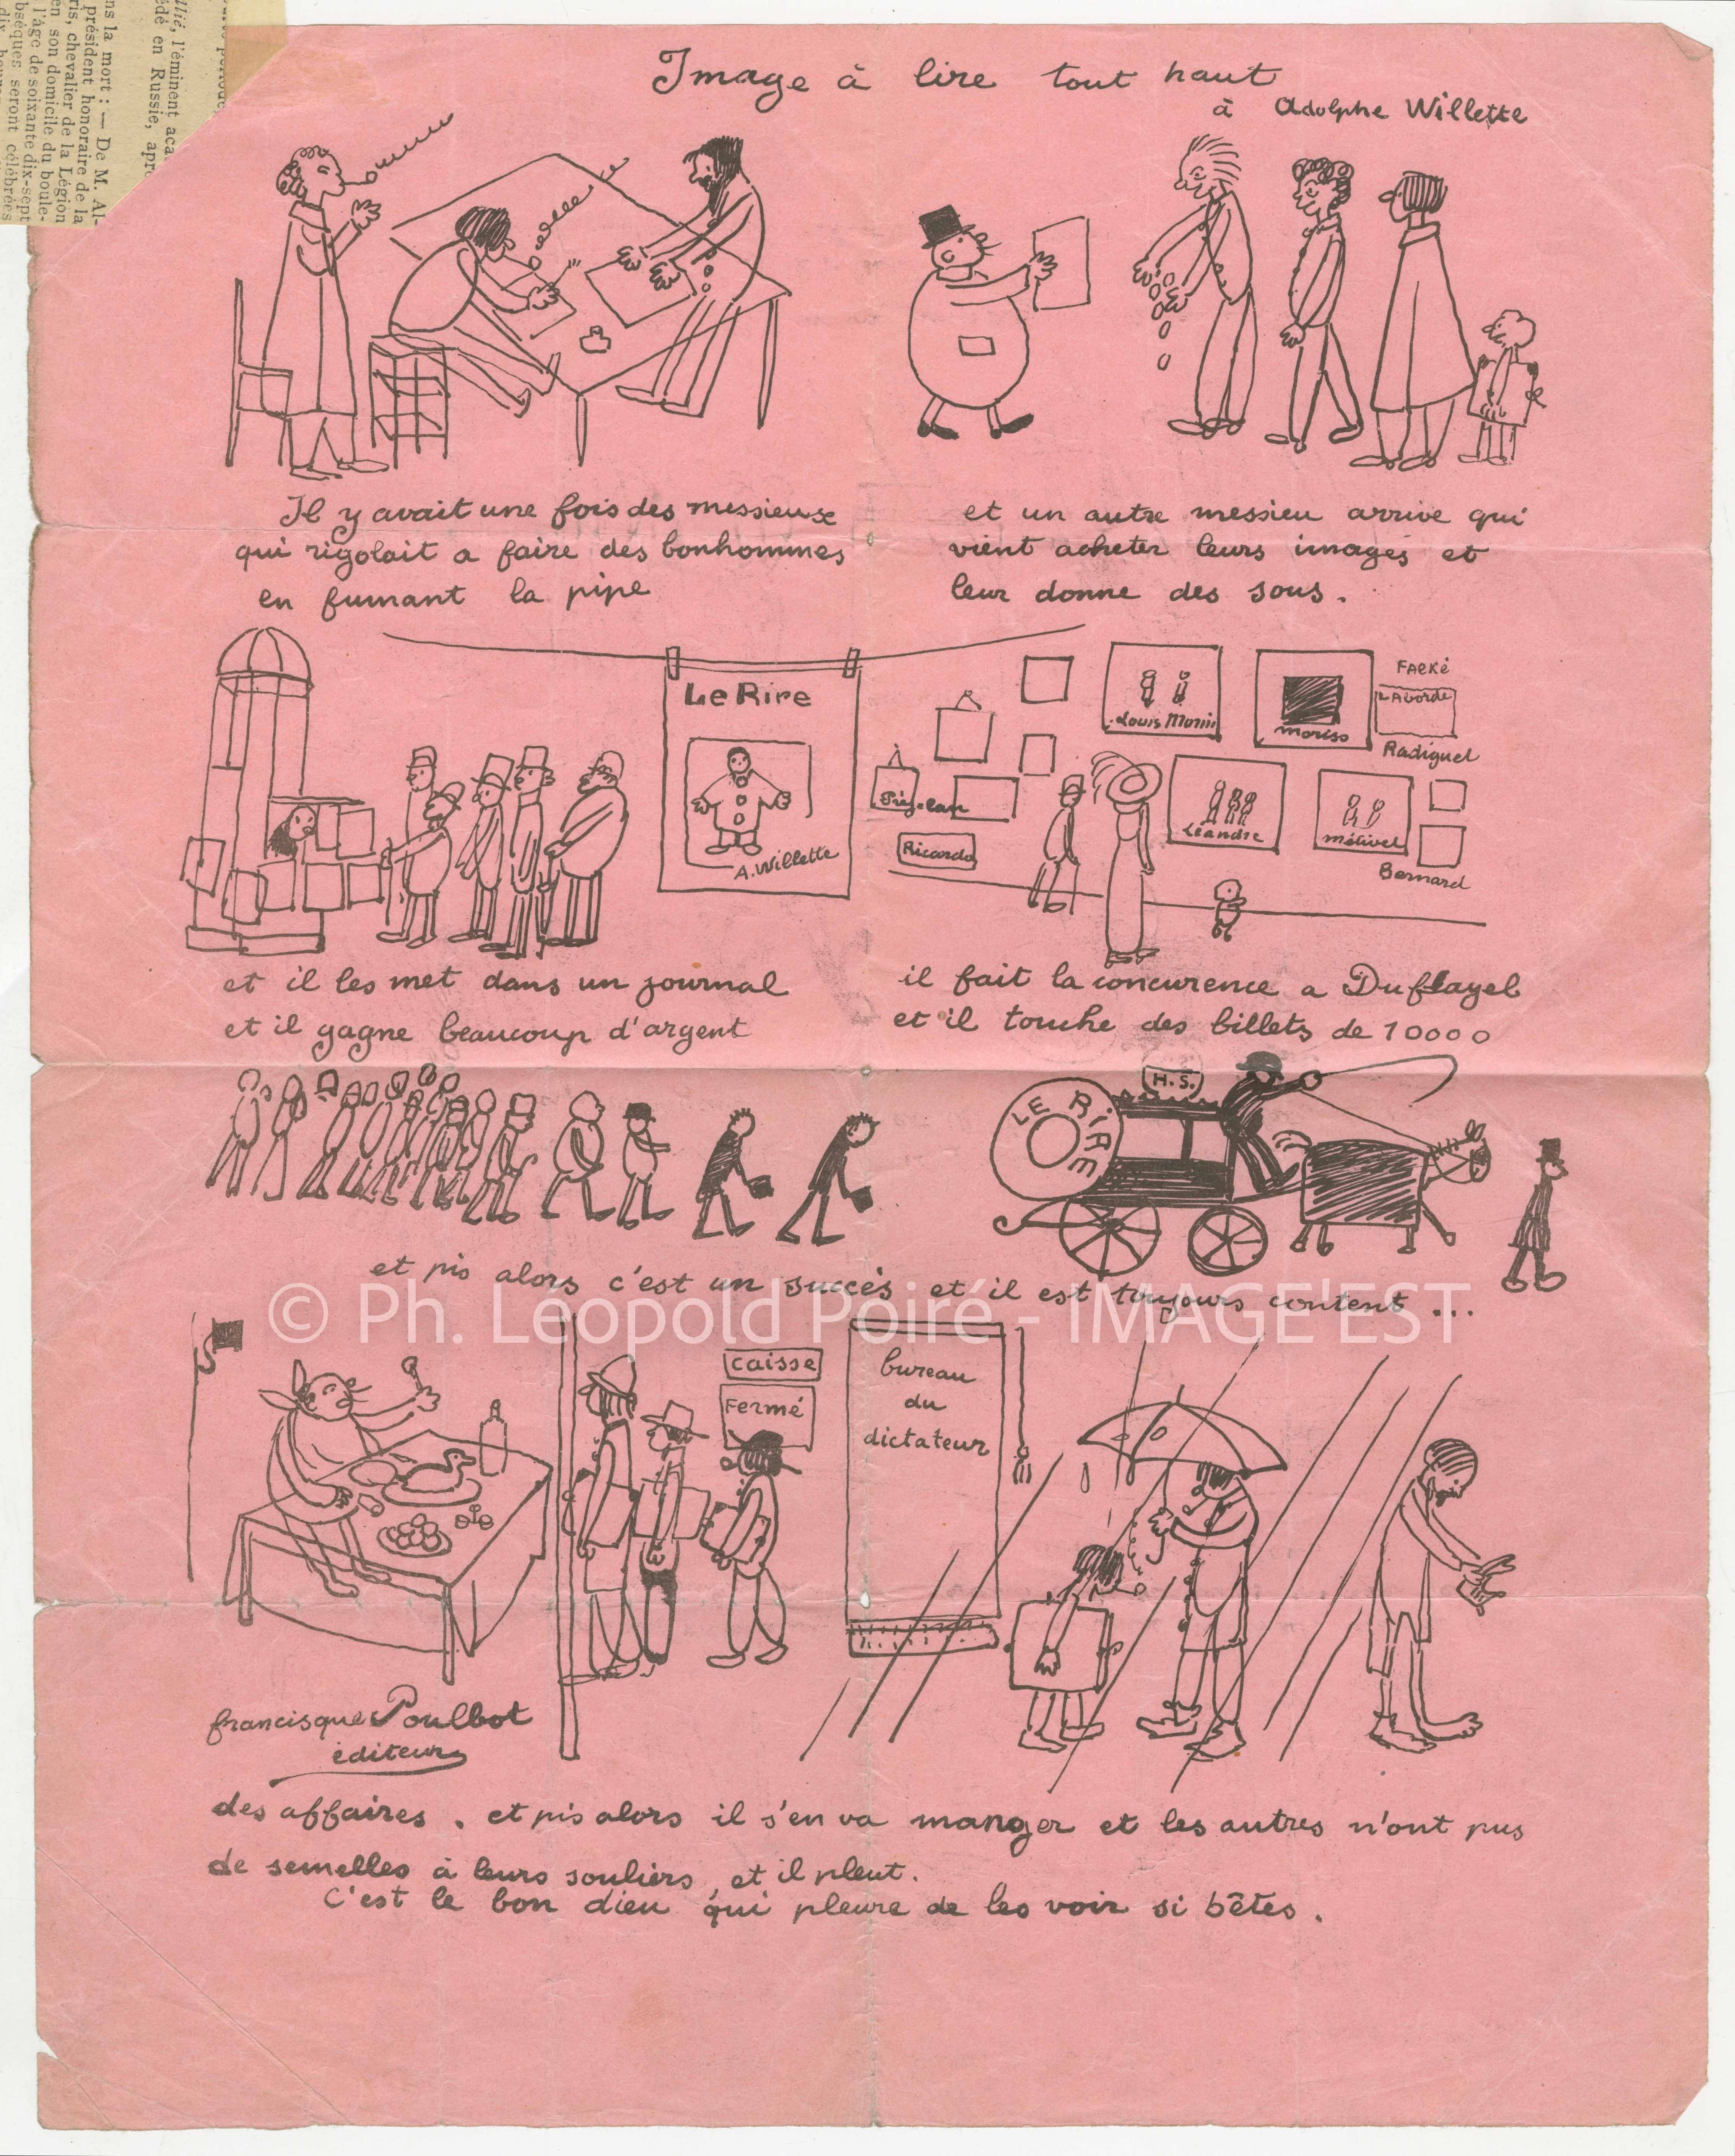 Image à lire tout haut
à Adolphe Willette
Il y avait une fois des messieuse
qui rigolait a faire des bonhommes
en fumant la pipe
et un autre messieu arrive qui
vient acheter leurs images et
leur donne des sous.
Le Rire
A. Willette
Louis Morin
moriso
FaRKé
Laborde
Radiguel
Ricardo
Léandre
métivet
Bernard
et il les met dans un journal
et il gagne beaucoup d'argent
il fait la concurence a Duflayel
et il touche des billets de 10000
LE RiRE
H.S.
et pis alors c'est un succès et il est toujours content ...
© Ph. Leopold Poiré - IMAGE'EST
caisse
Fermé
bureau
du
dictateur
francisque Poulbot
éditeur
des affaires. et pis alors il s'en va manger et les autres n'ont pus
de semelles à leurs souliers, et il pleut.
C'est le bon dieu qui pleure de les voir si bêtes.
ns la mort : — De M. Al-
président honoraire de la
ris, chevalier de la Légion
en son domicile du boule-
l'âge de soixante dix-sept
bsèques seront célébrées
llié, l'éminent aca
édé en Russie, apr